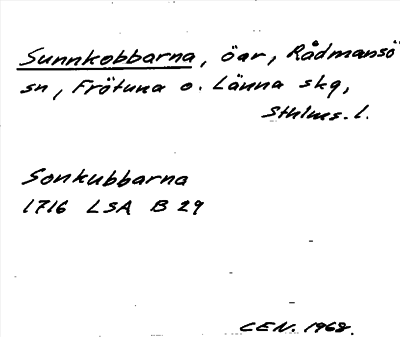 Sunnkobbarna, öar, Rådmansö
sn, Frötuna o. Länna skg,
Sthlms. l.
Sonkubbarna
1716 LSA B 29
CEN. 1968.